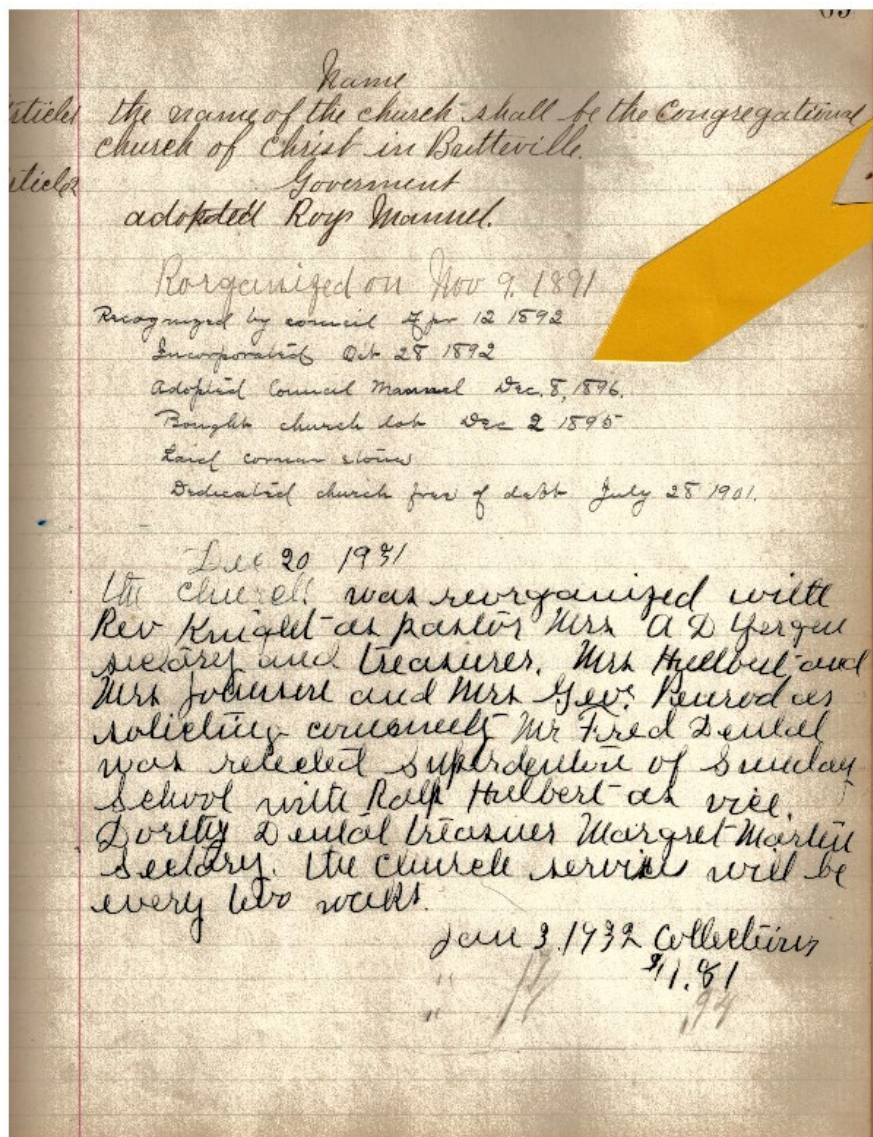 Name
Article1 the name of the church shall be the Congregational
church of Christ in Butteville.
Article2 Goverment
adopted Roys Mannel.
Rorganized on Nov 9. 1891
Recognized by council Apr 12 1892
Incorporated Oct 28 1892
Adopted Council Mannel Dec. 8, 1896.
Bought church lot Dec 2 1895
Laid corner stone
Dedicated church free of debt July 28 1901.
Dec 20 1931
the church was reorganized with
Rev Knight as pastor Mrs A D Yergen
sectary and treasurer. Mrs Hulbert and
Mrs Johnson and Mrs Geo. Penrod as
soliciting Mr Fred Dental
was relected of Sunday
School with Ralp Hulbert as vice.
Dental treasurer Margret Martin
Sectary. the church services will be
every two weeks.
Jan 3. 1932 Collections
$1.81
" 17 .94
"